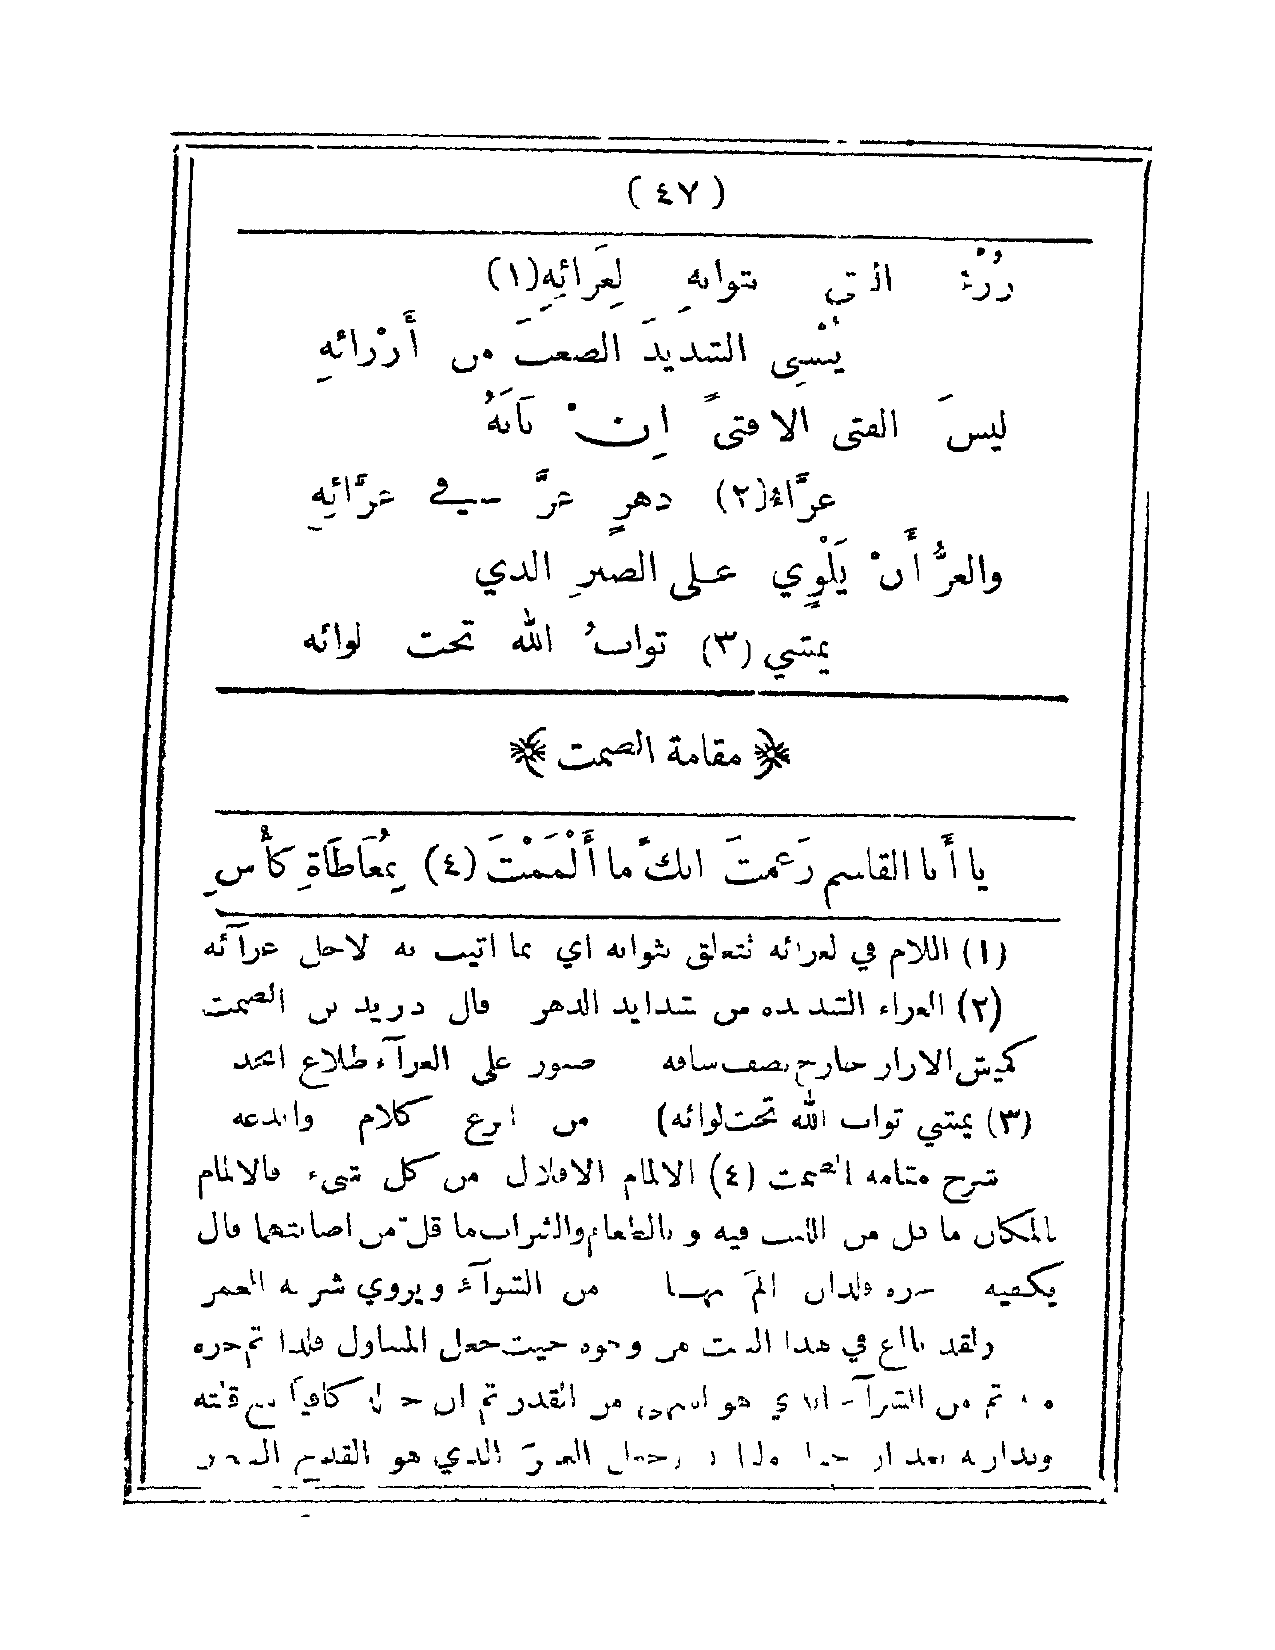 ( ٤٧ )
التي بثوابه لِعَزائِهِ(١)
يُنْسِى الشديدَ الصعبَ من أَرْزائهِ
ليسَ الفتى الا فتىً إِنْ نابَهُ
عزَّاءُ(٢) دهرٍ عزَّ في عزَّائهِ
والعزُّ أَنْ يَلْوِي على الصبرِ الذي
يمشي (٣) ثوابُ الله تحت لوائه
مقامة الصمت
يا أَبا القاسم زَعمتَ انكَّ ما أَلْمَمْتَ (٤) بِمُعَاطَاةِ كأْسِ
(١) اللام في لعزائه تتعلق بثوابه اي بما اثيب به لاجل عزآئه
(٢) العزاء الشديدة من شدايد الدهر قال دريد بن الصمت
كميش الازار خارج نصف ساقه صبور على العزآء طلاع انجد
(٣) يمشي ثواب الله تحت لوائه) من ابرع كلام وابدعه
شرح مقامة الصمت (٤) الالمام الاقلال من كل شيء فالالمام
بالمكان ما قل من اللبث فيه و بالطعام والشراب ما قل من اصابتهما قال
يكفيه حزة فلذان المّ بها من الشوآء ويروي شربه الغمر
ولقد بالغ في هذا البيت من وجوه حيث جعل المتناول فلذا ثم حزه
من الشوآء الذي هو من القدر ثم ان كافيا مع قلته
الذي هو القدح